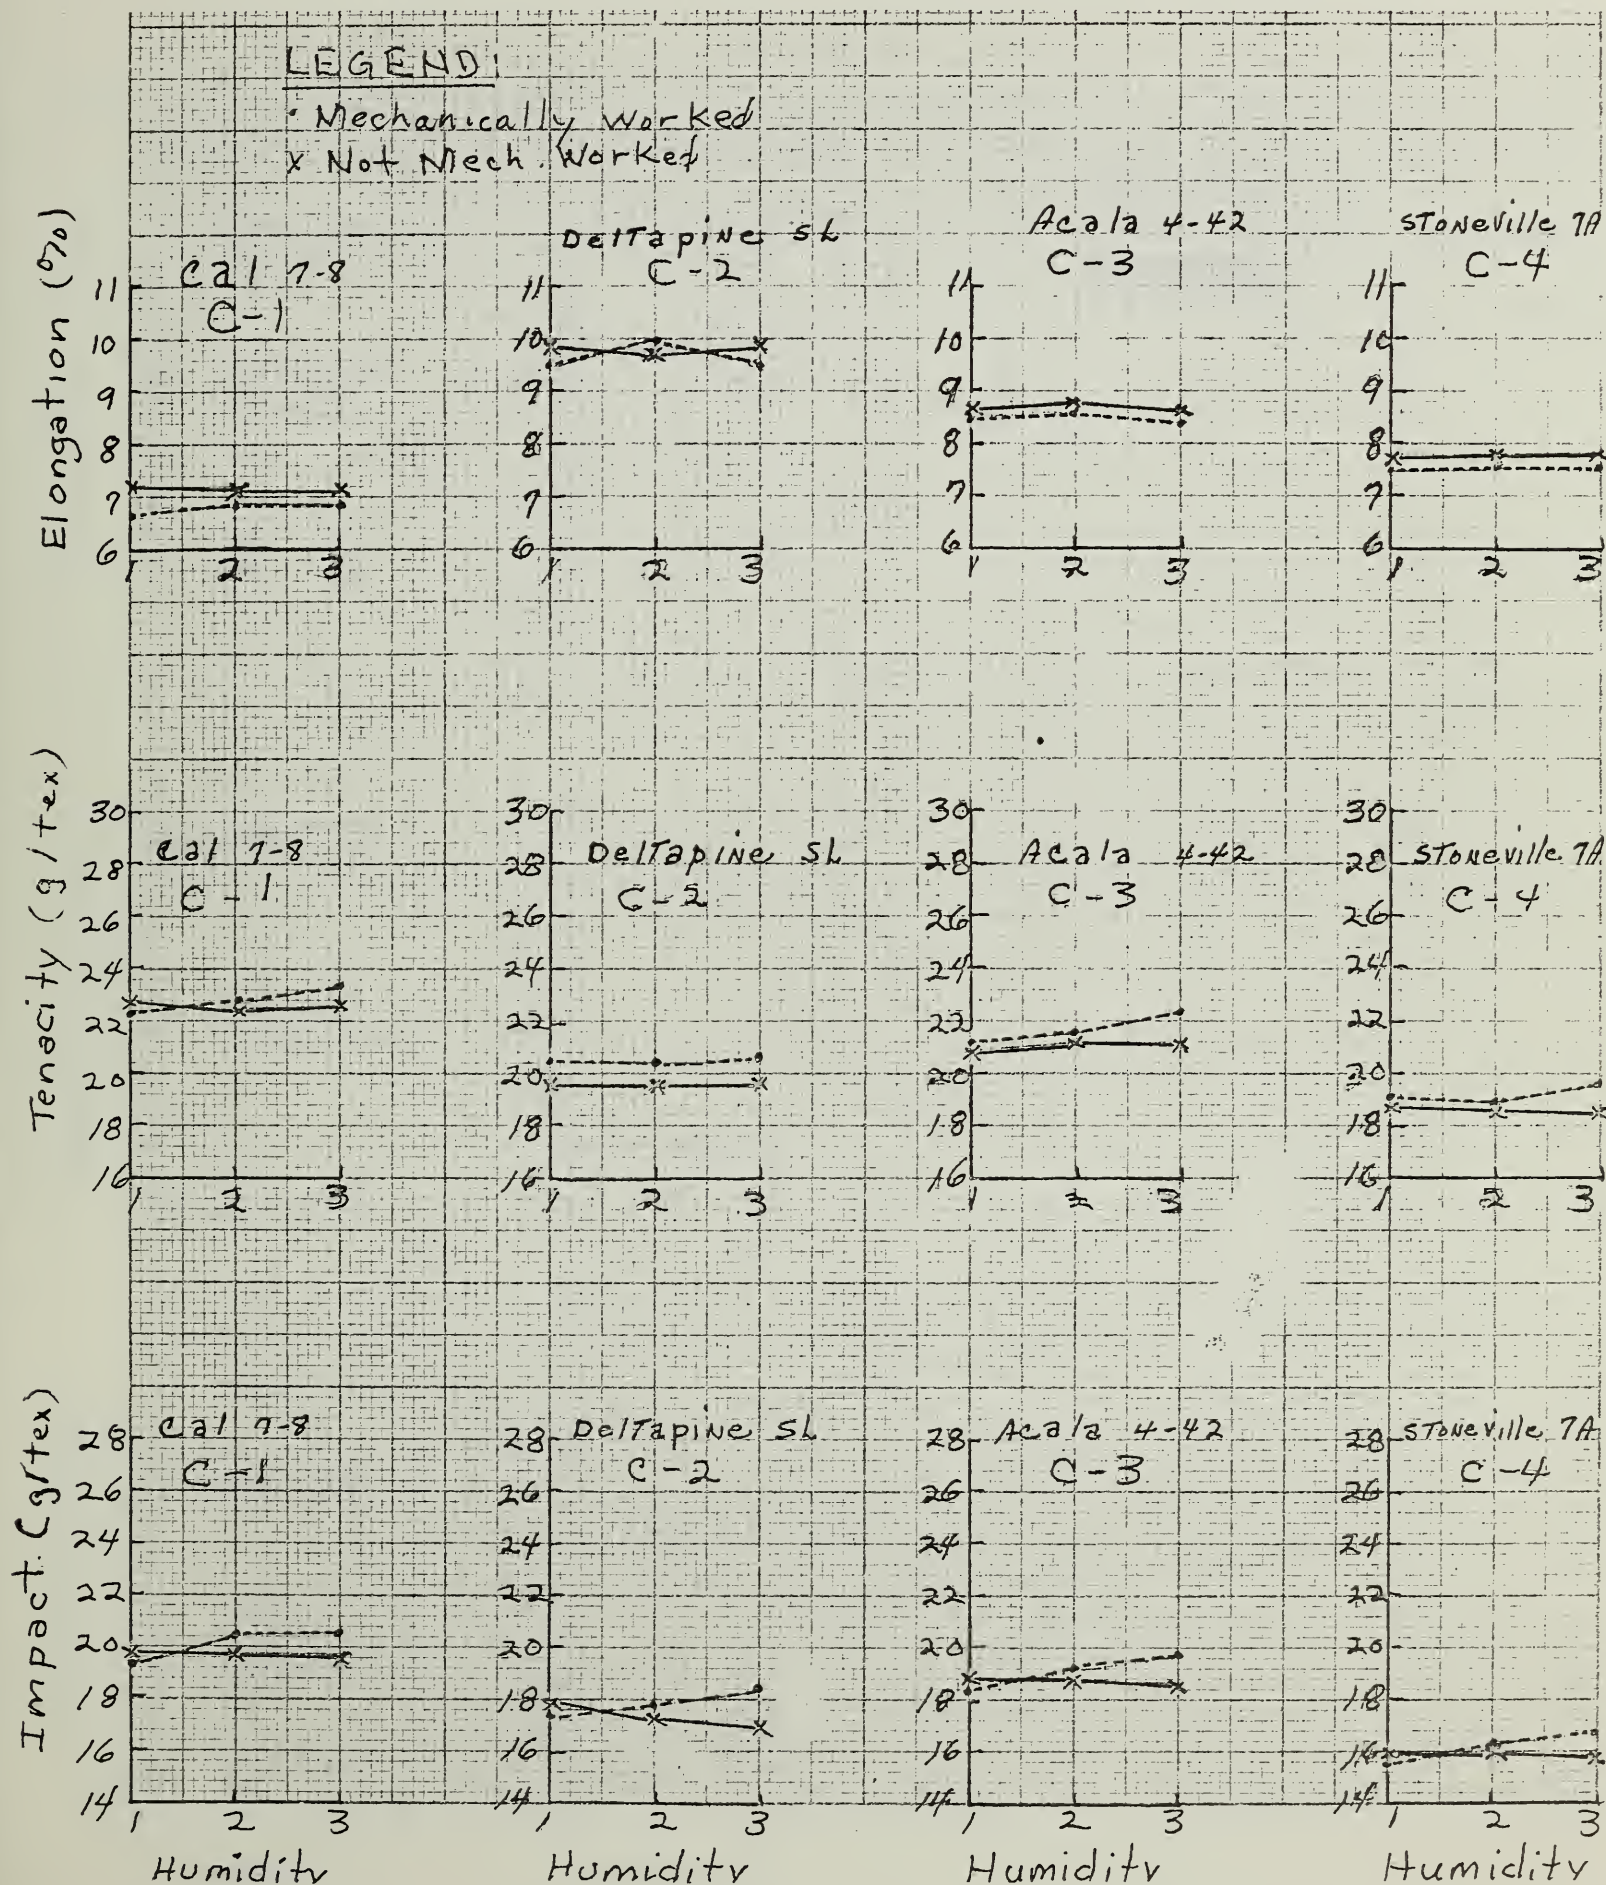 LEGEND:
• Mechanically Worked
x Not Mech. Worked
Elongation (%)
Cal 7-8
C-1
11
10
9
8
7
6
1 2 3
Deltapine SL
C-2
11
10
9
8
7
6
1 2 3
Acala 4-42
C-3
11
10
9
8
7
6
1 2 3
Stoneville 7A
C-4
11
10
9
8
7
6
1 2 3
Tenacity (g/tex)
30
Cal 7-8
28
C-1
26
24
22
20
18
16
1 2 3
30
Deltapine SL
28
C-2
26
24
22
20
18
16
1 2 3
30
Acala 4-42
28
C-3
26
24
22
20
18
16
1 2 3
30
Stoneville 7A
28
C-4
26
24
22
20
18
16
1 2 3
Impact (g/tex)
Cal 7-8
28
C-1
26
24
22
20
18
16
14
1 2 3
Humidity
Deltapine SL
28
C-2
26
24
22
20
18
16
14
1 2 3
Humidity
Acala 4-42
28
C-3
26
24
22
20
18
16
14
1 2 3
Humidity
Stoneville 7A
28
C-4
26
24
22
20
18
16
14
1 2 3
Humidity